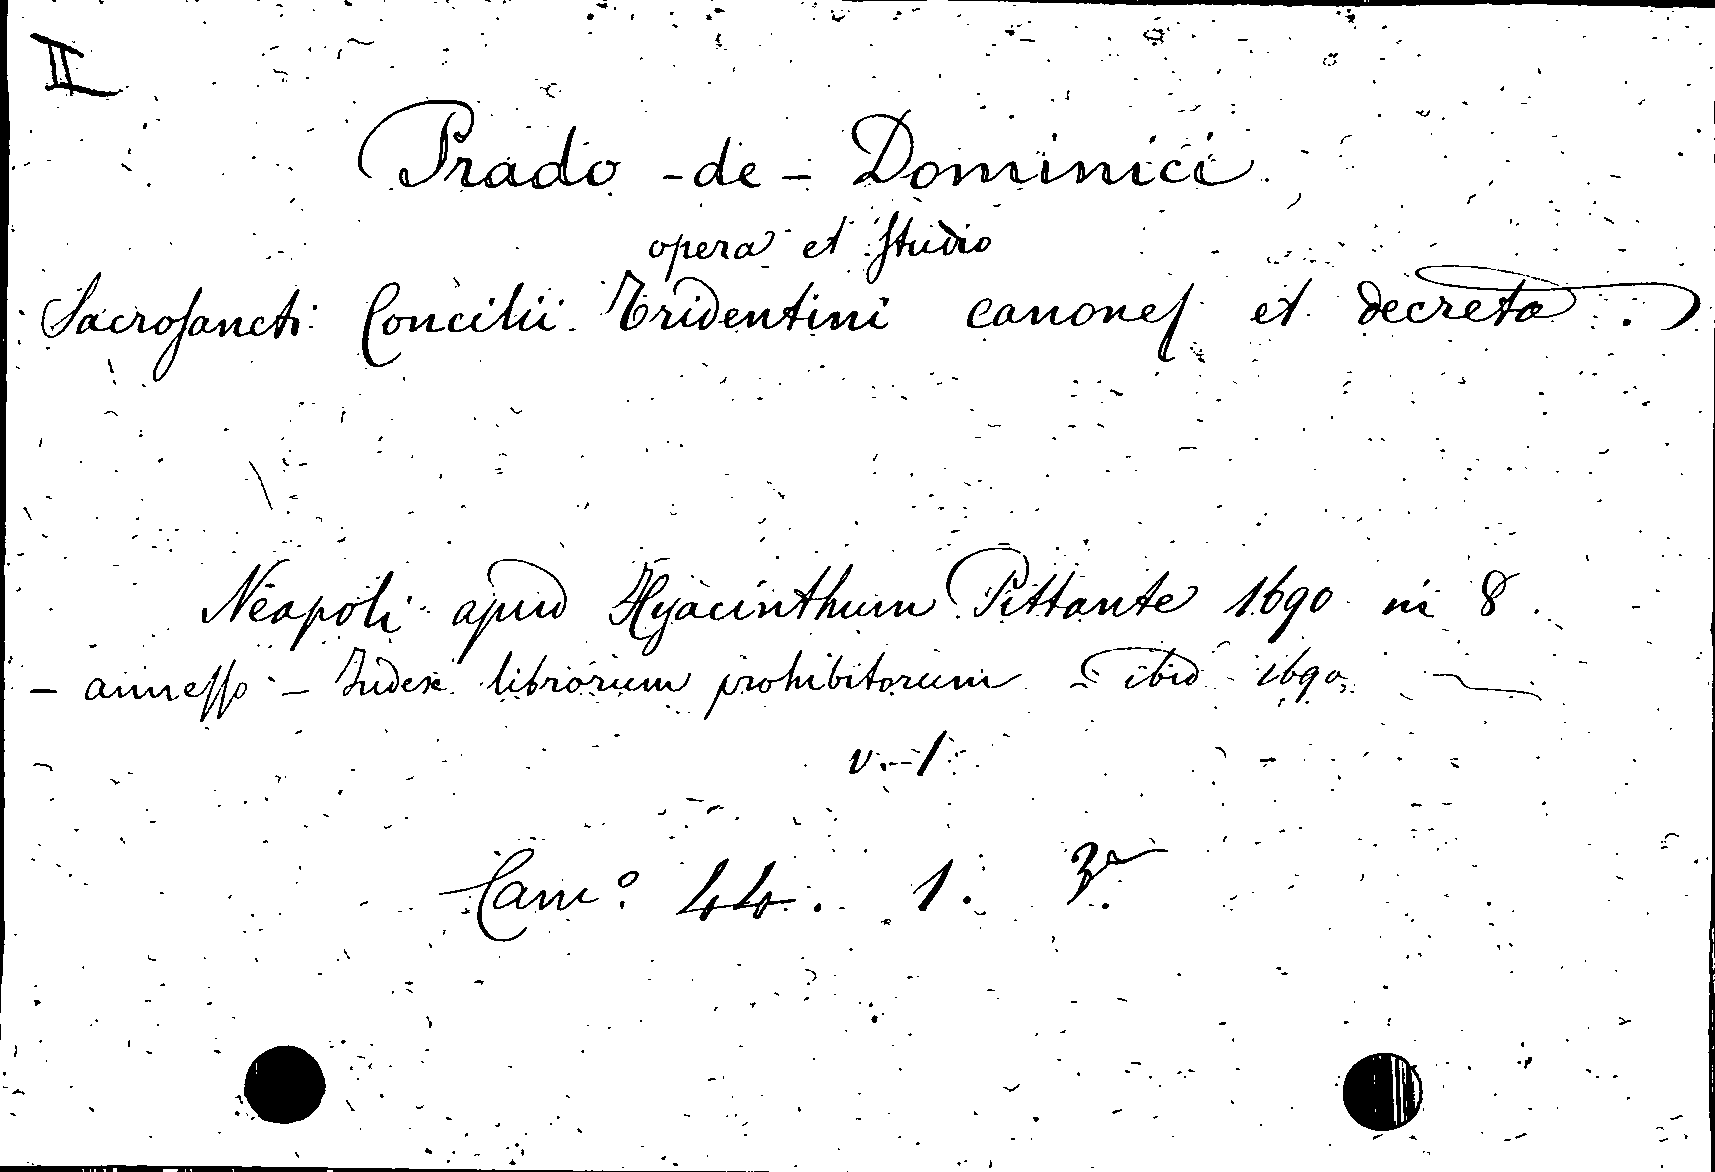 II
Prado - de - Dominici
opera et studio
Sacrosancti Concilii Tridentini canones et decreta
Neapoli apud Hyacinthum Pittante 1690 in 8.
- annesso - Index librorum prohibitorum - ibid 1690
v. 1
Cam.º 44. 1. 3ª